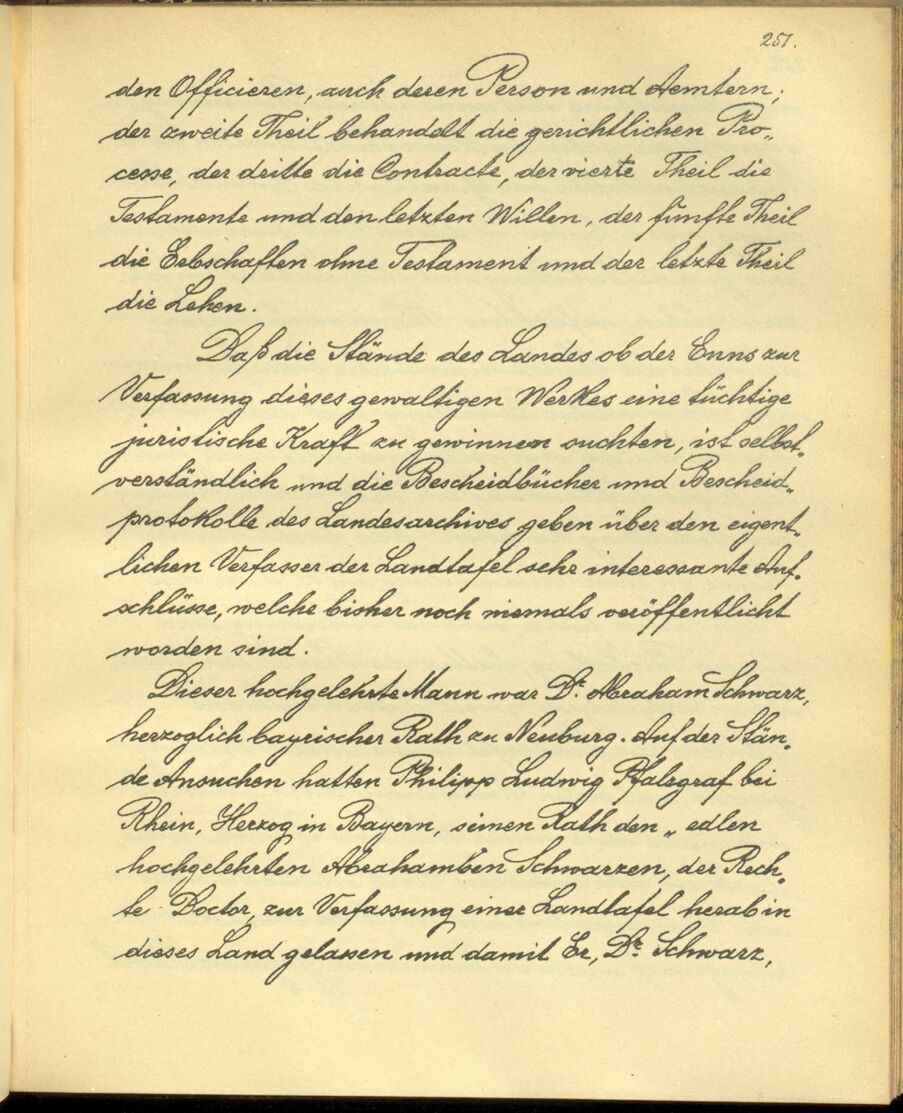 251.
den Officieren, auch deren Person und Aemtern;
der zweite Theil behandelt die gerichtlichen Pro„
cesse, der dritte die Contracte, der vierte Theil die
Testamente und den letzten Willen, der fünfte Theil
die Erbschaften ohne Testament und der letzte Theil
die Lehen.
Daß die Stände des Landes ob der Enns zur
Verfassung dieses gewaltigen Werkes eine tüchtige
juristische Kraft zu gewinnen suchten, ist selbst„
verständlich und die Bescheidbücher und Bescheid„
protokolle des Landesarchives geben über den eigent„
lichen Verfasser der Landtafel sehr interessante Auf„
schlüsse, welche bisher noch niemals veröffentlicht
worden sind.
Dieser hochgelehrte Mann war Dr. Abraham Schwarz,
herzoglich bayrischer Rath zu Neuburg. Auf der Stän„
de Ansuchen hatten Philipp Ludwig Pfalzgraf bei
Rhein, Herzog in Bayern, seinen Rath den „edlen
hochgelehrten Abrahamben Schwarzen, der Rech„
te Doctor, zur Verfassung einer Landtafel herab in
dieses Land gelassen und damit Er, Dr. Schwarz,